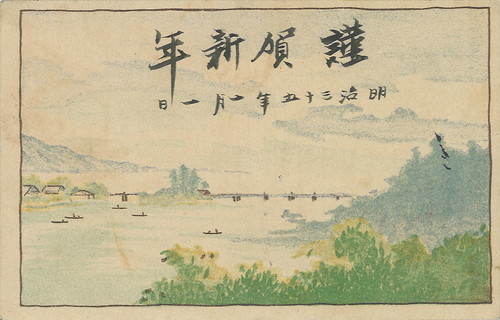 謹賀新年
明治三十五年一月一日